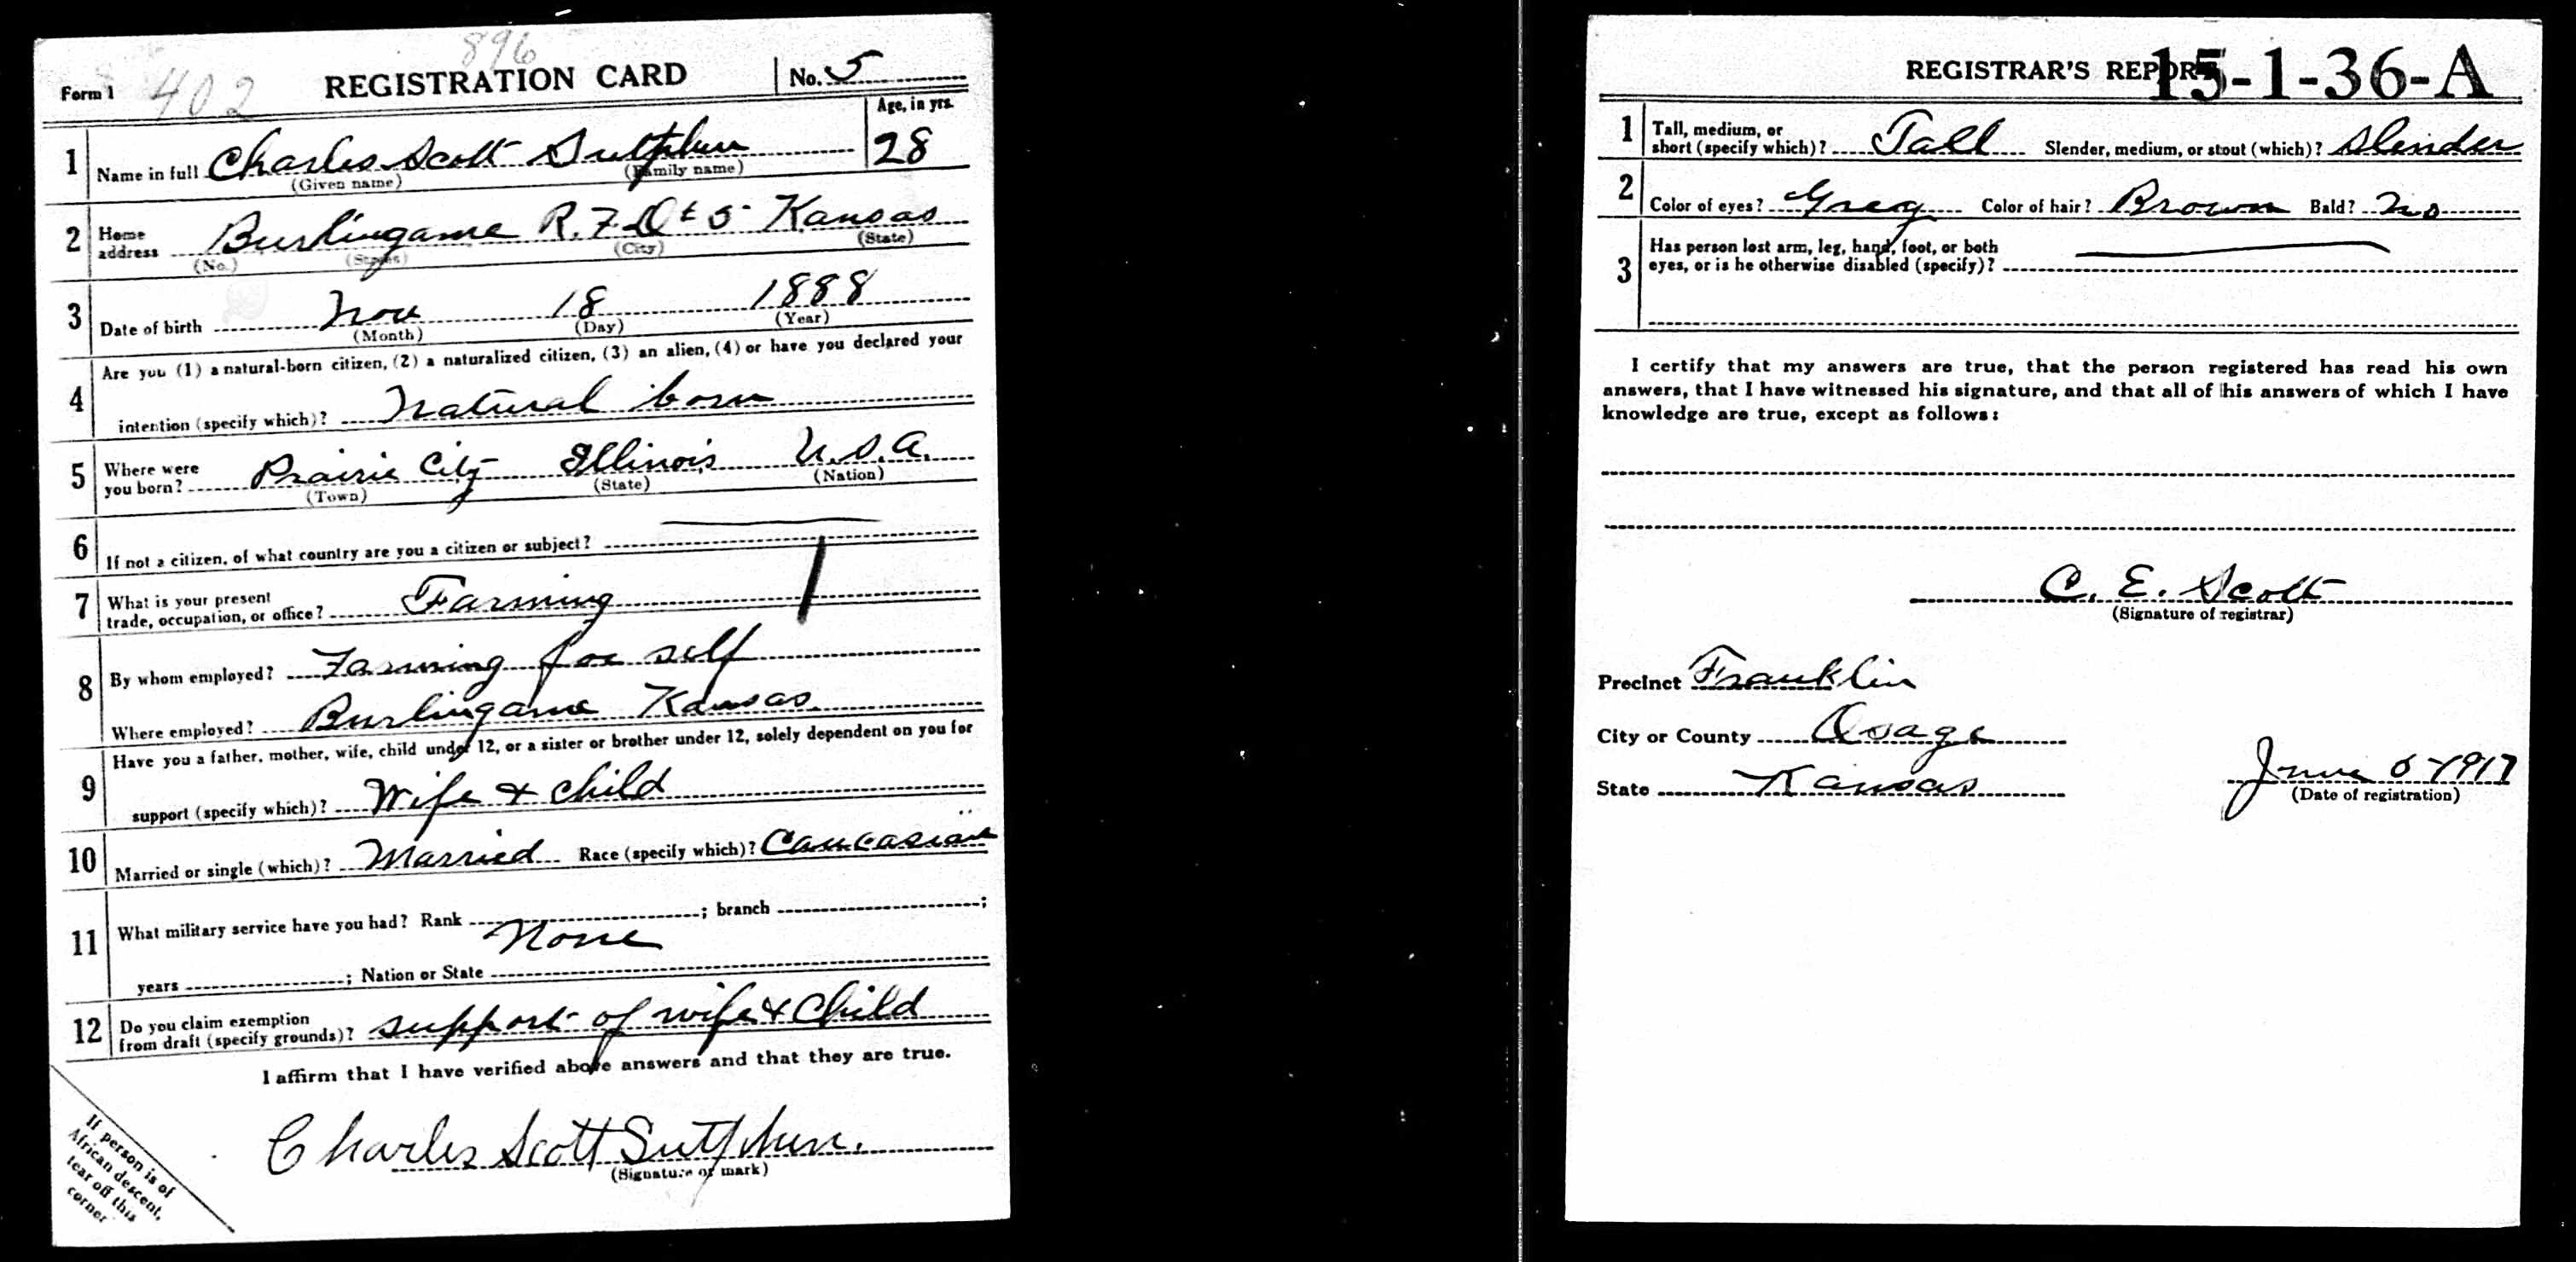 896
Form 1 402 REGISTRATION CARD No. 5
Age, in yrs.
1 Name in full Charles Scott Sutphen 28
(Given name) (Family name)
2 Home address Burlingame R.F.D # 5 Kansas
(No.) (Street) (City) (State)
3 Date of birth Nov 18 1888
(Month) (Day) (Year)
4 Are you (1) a natural-born citizen, (2) a naturalized citizen, (3) an alien, (4) or have you declared your
intention (specify which)? Natural born
5 Where were you born? Prairie City Illinois U.S.A.
(Town) (State) (Nation)
6 If not a citizen, of what country are you a citizen or subject?
7 What is your present trade, occupation, or office? Farming
8 By whom employed? Farming for self
Where employed? Burlingame Kansas.
9 Have you a father, mother, wife, child under 12, or a sister or brother under 12, solely dependent on you for
support (specify which)? Wife & child
10 Married or single (which)? Married Race (specify which)? Caucasian
11 What military service have you had? Rank ; branch ;
None
years ; Nation or State
12 Do you claim exemption from draft (specify grounds)? support of wife & Child
I affirm that I have verified above answers and that they are true.
Charles Scott Sutphen.
(Signature or mark)
If person is of
African descent,
tear off this
corner
REGISTRAR'S REPORT 15-1-36-A
1 Tall, medium, or short (specify which)? Tall Slender, medium, or stout (which)? Slender
2 Color of eyes? Grey Color of hair? Brown Bald? No
3 Has person lost arm, leg, hand, foot, or both
eyes, or is he otherwise disabled (specify)?
I certify that my answers are true, that the person registered has read his own
answers, that I have witnessed his signature, and that all of his answers of which I have
knowledge are true, except as follows:
C. E. Scott
(Signature of registrar)
Precinct Franklin
City or County Osage
State Kansas June 5-1917
(Date of registration)